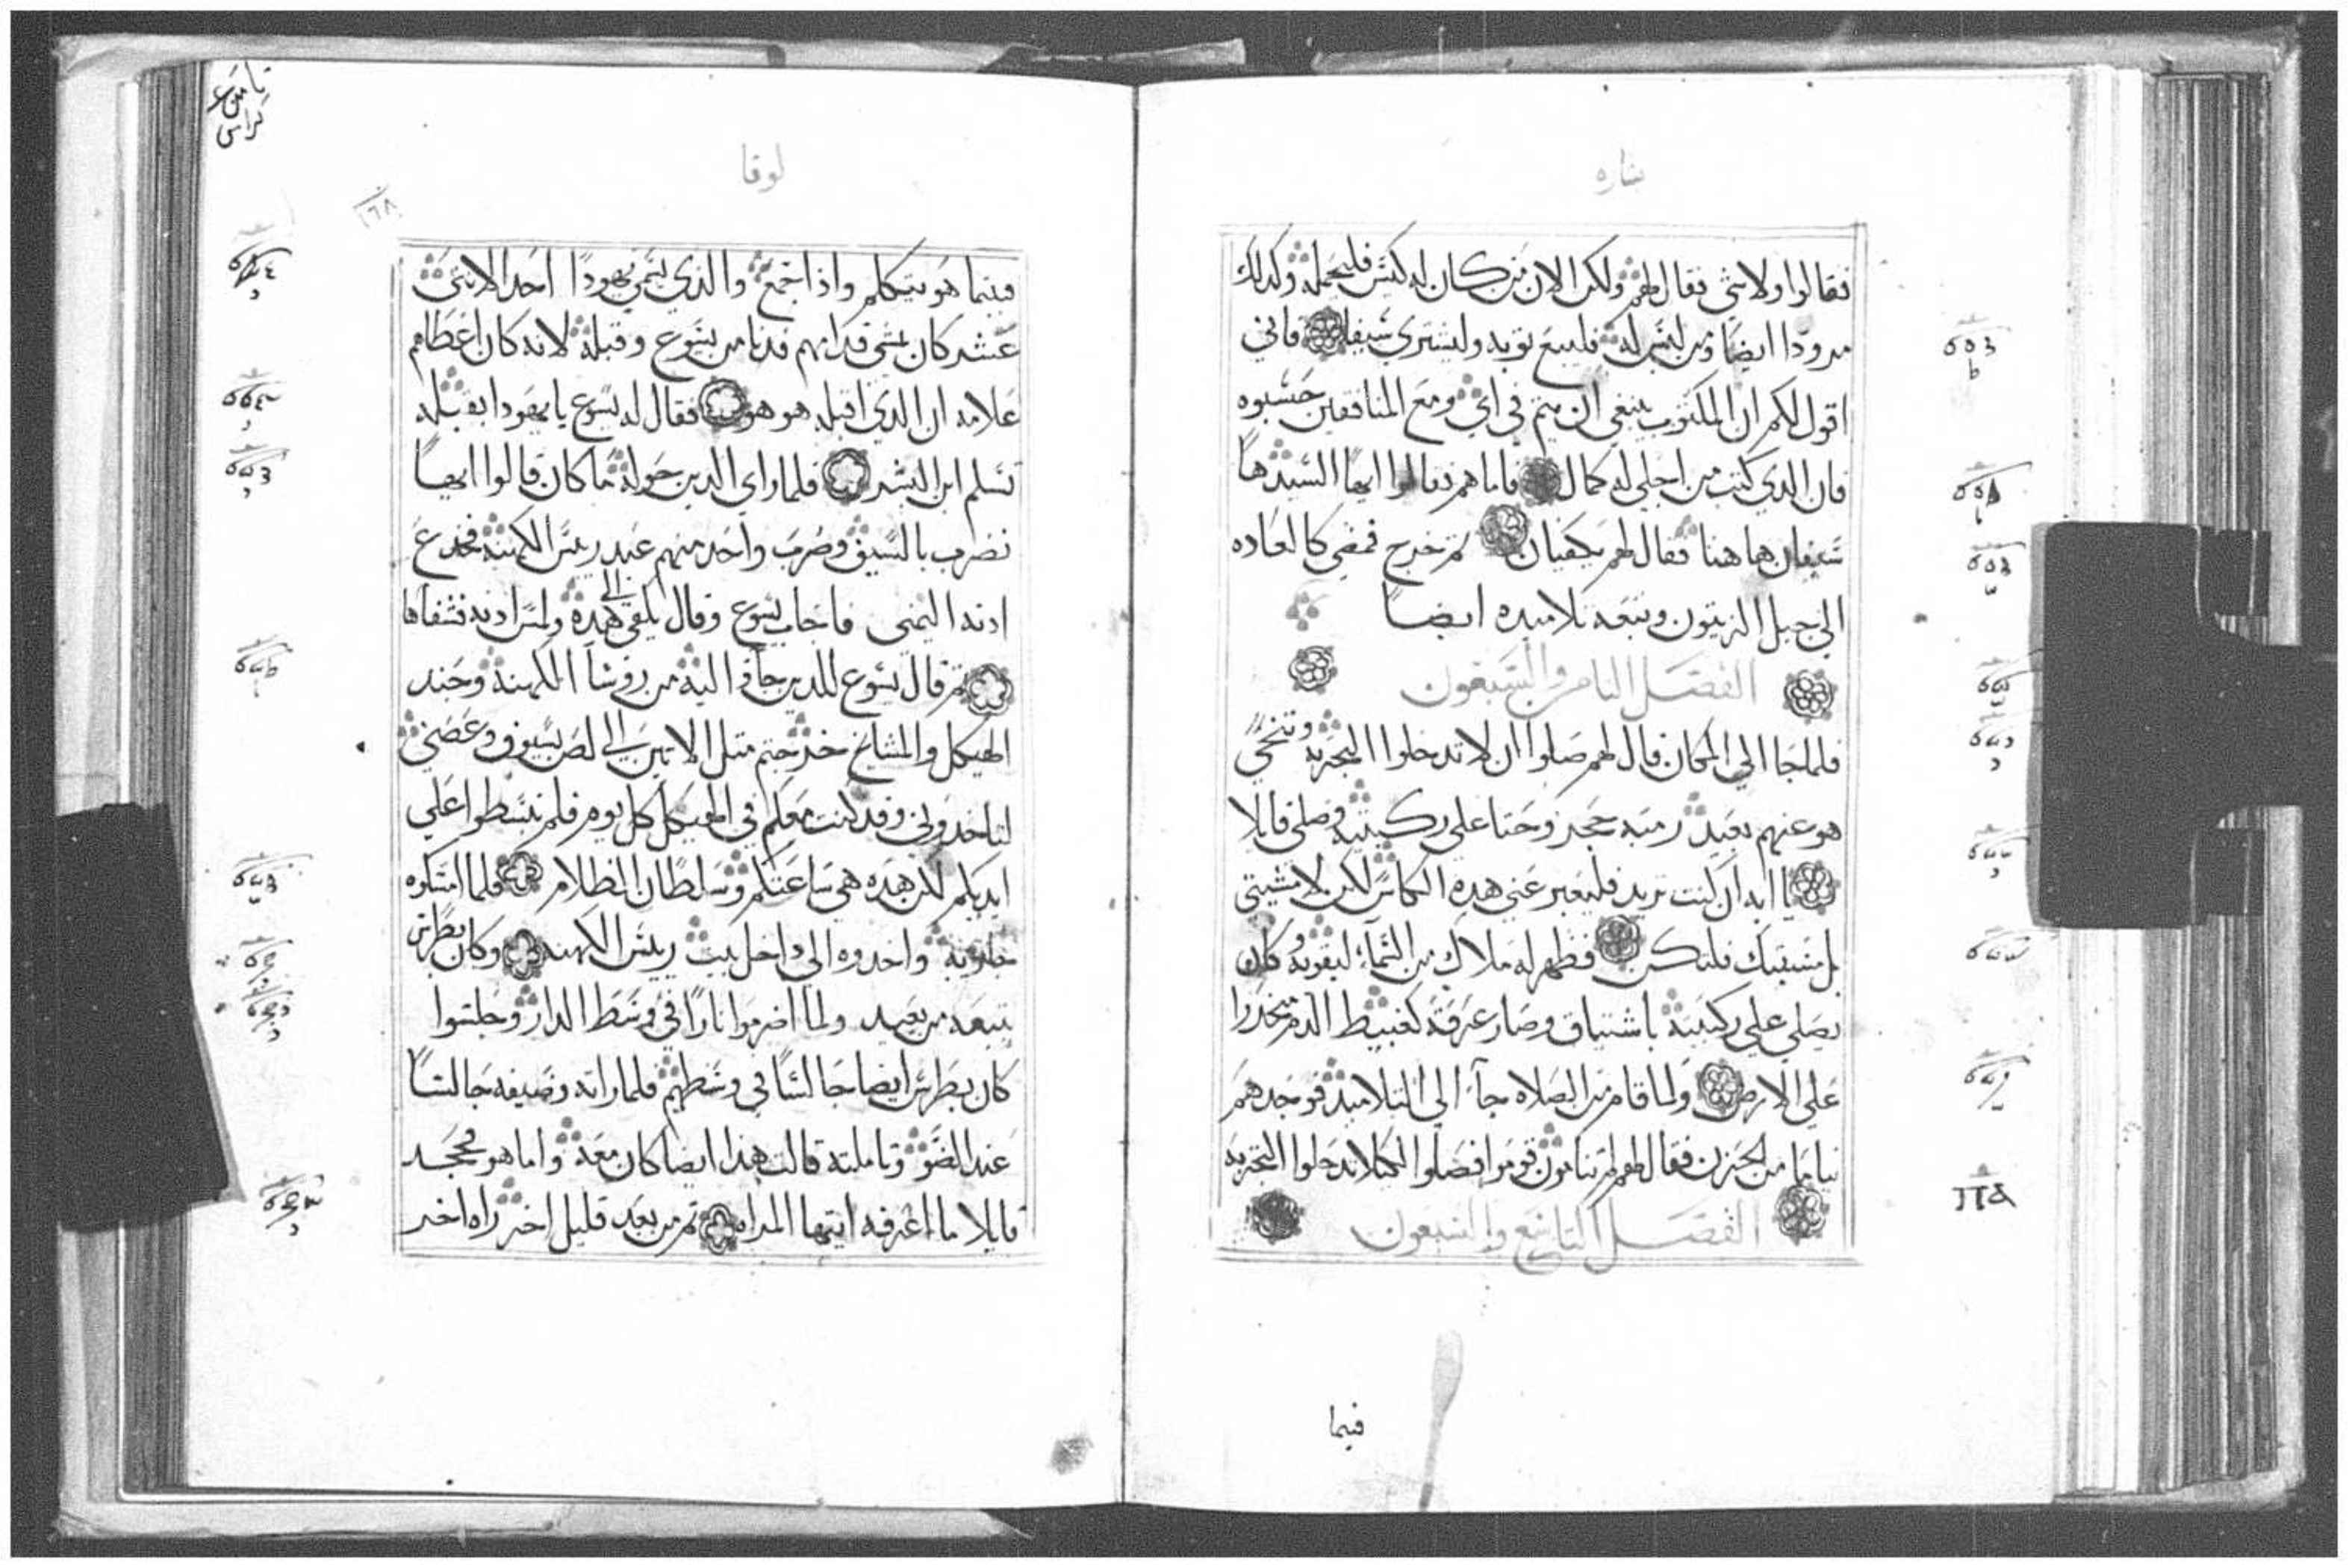 بشاره
فقالوا ولا شي فقال لهم ولكن الان من كان له كيس فليحمله وكدلك
مرودا ايضا ومن ليس له فليبيع توبه وليشتري سيفا فاني
اقول لكم ان المكتوب ينبغي ان يتم في اي ومع المنافقين حسبوه
فان الدي كتب من اجلي له كمال فاما هم فقالوا ايها السيد ها
سيفان هاهنا فقال لهم يكفيان تم خرج فمضي كالعاده
الي جبل الزيتون وتبعه تلاميده ايضا
الفصل التامن والسبعون
فلما جا الي المكان قال لهم صلوا ان لا تدخلوا التجربه وتنحي
هو عنهم بعيد رمية حجر وحتا علي ركبتيه وصلي قايلا
يا ابه ان كنت تريد فليعبر عني هده الكاس لكن لا مشيتي
بل مشيتك فلتكن فظهر له ملاك من السماء ليقويه وكان
يصلي علي ركبتيه باشتياق وصار عرقه كغبيط الدم منحدرا
علي الارض ولما قام من الصلاه جآء الي التلاميد فوجدهم
نياما من الحزن فقال لهم لم تنامون قوموا فصلوا لكيلا تدخلوا التجربه
الفصل التاسع والسبعون
فيما
لوقا
١٦٨
فبينما هو يتكلم واذا جمع والدي يسمي يهودا احد الاتني
عشر كان يمشي قدامهم فدنا من يسوع وقبله لانه كان اعطاهم
علامه ان الدي اقبله هو هو فقال له يسوع يا يهودا بقبله
تسلم ابن البشر فلما راي الدين حوله ما كان قالوا ايها
نضرب بالسيف وضرب واحد منهم عبد ريس الكهنه فجدع
ادنه اليمني فاجاب يسوع وقال يكفي الي هده ولمس ادنه فشفاها
تم قال يسوع للدين جآوا اليه من روسآ الكهنه وجند
الهيكل والمشايخ خرجتم متل الاتين الي لص بسيوف وعصي
لتاخدوني وقد كنت معكم في الهيكل كل يوم فلم تبسطوا علي
ايديكم لكن هده هي ساعتكم وسلطان الظلام فلما امسكوه
جاوا به واخدوه الي داخل بيت ريس الكهنه وكان بطرس
يتبعه من بعيد ولما اضرموا نارا في وسط الدار وجلسوا
كان بطرس ايضا جالسا في وسطهم فلما راته وصيفه جالسا
عند الضو وتاملته قالت هدا ايضا كان معه واما هو فجحد
قايلا ما اعرفه ايتها المراه تم من بعد قليل اخر راه اخر